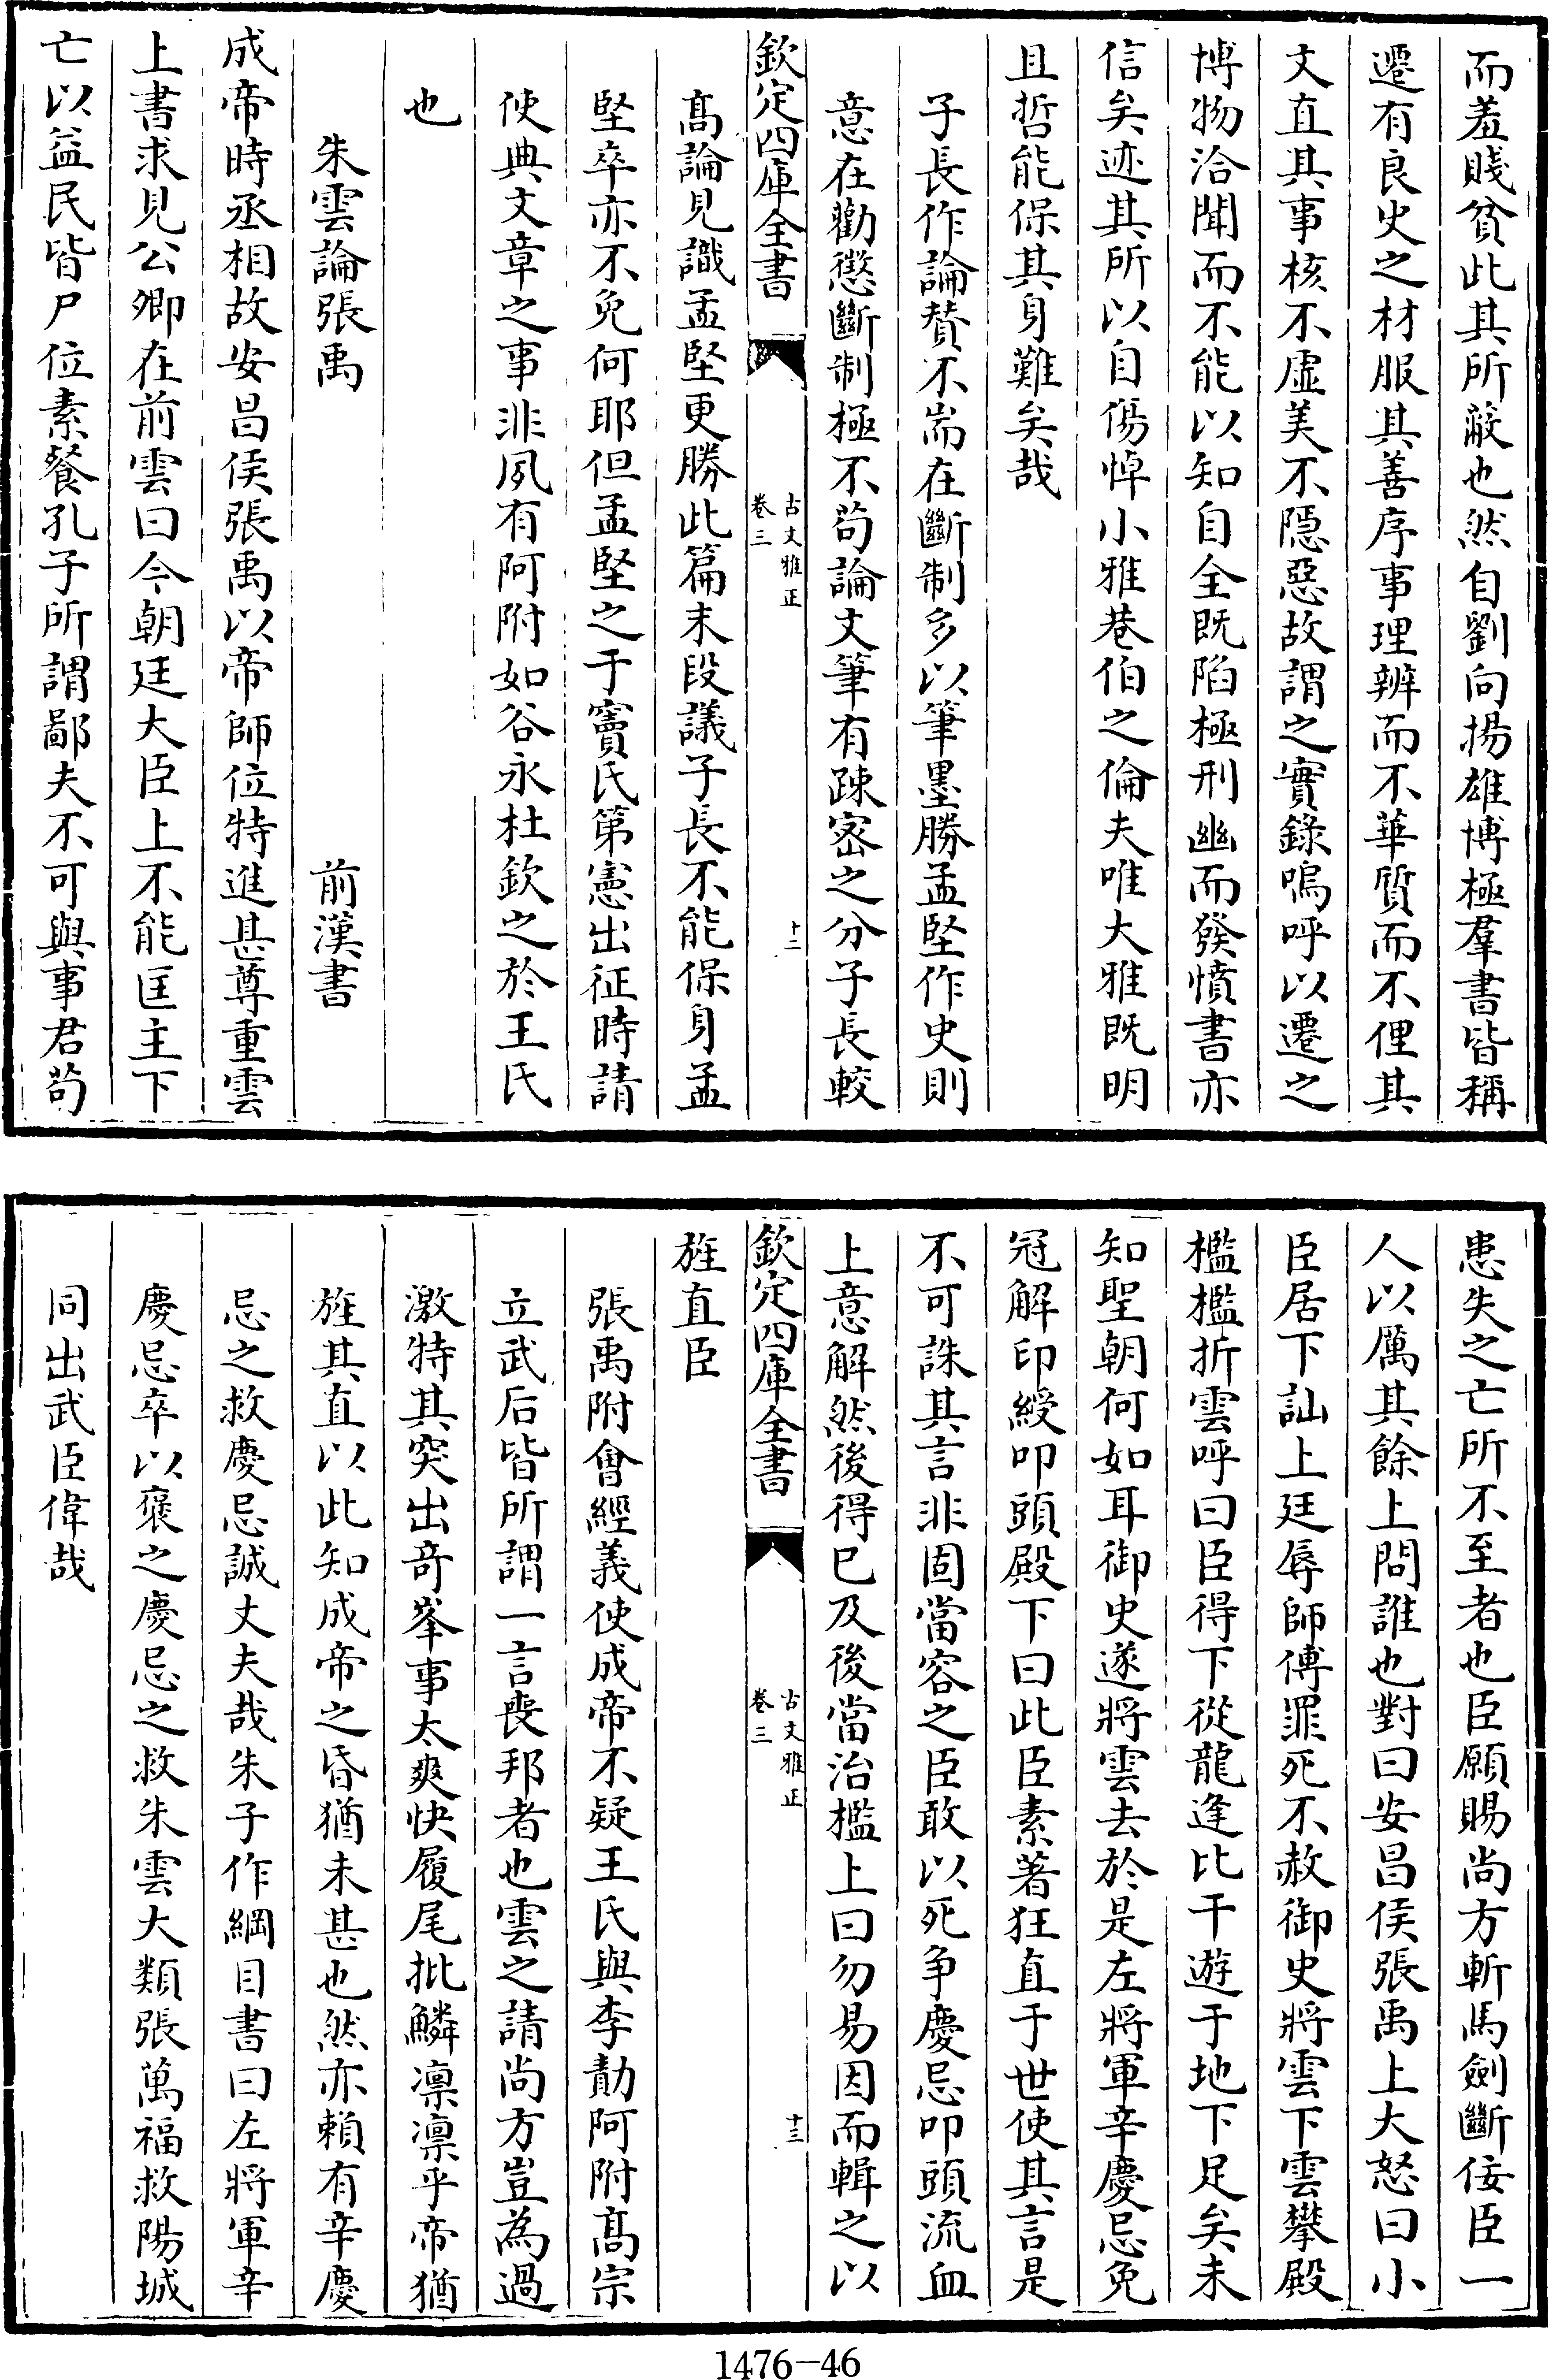 而羞賤貧此其所蔽也然自劉向揚雄博極羣書皆稱
遷有良史之材服其善序事理辨而不華質而不俚其
文直其事核不虛美不隱惡故謂之實錄嗚呼以遷之
博物洽聞而不能以知自全既陷極刑幽而發憤書亦
信矣迹其所以自傷悼小雅巷伯之倫夫唯大雅既明
且哲能保其身難矣哉
子長作論賛不耑在斷制多以筆墨勝孟堅作史則
意在勸懲斷制極不苟論文筆有疎密之分子長較
欽定四庫全書
古文雅正
卷三
十二
髙論見識孟堅更勝此篇末段議子長不能保身孟
堅卒亦不免何耶但孟堅之于竇氏第憲出征時請
使典文章之事非夙有阿附如谷永杜欽之於王氏
也
朱雲論張禹 前漢書
成帝時丞相故安昌侯張禹以帝師位特進甚尊重雲
上書求見公卿在前雲曰今朝廷大臣上不能匡主下
亡以益民皆尸位素餐孔子所謂鄙夫不可與事君苟
患失之亡所不至者也臣願賜尚方斬馬劍斷佞臣一
人以厲其餘上問誰也對曰安昌侯張禹上大怒曰小
臣居下訕上廷辱師傅罪死不赦御史將雲下雲攀殿
檻檻折雲呼曰臣得下從龍逢比干遊于地下足矣未
知聖朝何如耳御史遂將雲去於是左將軍辛慶忌免
冠解印綬叩頭殿下曰此臣素著狂直于世使其言是
不可誅其言非固當容之臣敢以死争慶忌叩頭流血
上意解然後得已及後當治檻上曰勿易因而輯之以
欽定四庫全書
古文雅正
卷三
十三
旌直臣
張禹附會經義使成帝不疑王氏與李勣阿附髙宗
立武后皆所謂一言喪邦者也雲之請尚方豈為過
激特其突出竒峯事太爽快履尾批鱗凛凛乎帝猶
旌其直以此知成帝之昏猶未甚也然亦賴有辛慶
忌之救慶忌誠丈夫哉朱子作綱目書曰左將軍辛
慶忌卒以褒之慶忌之救朱雲大類張萬福救陽城
同出武臣偉哉
1476-46